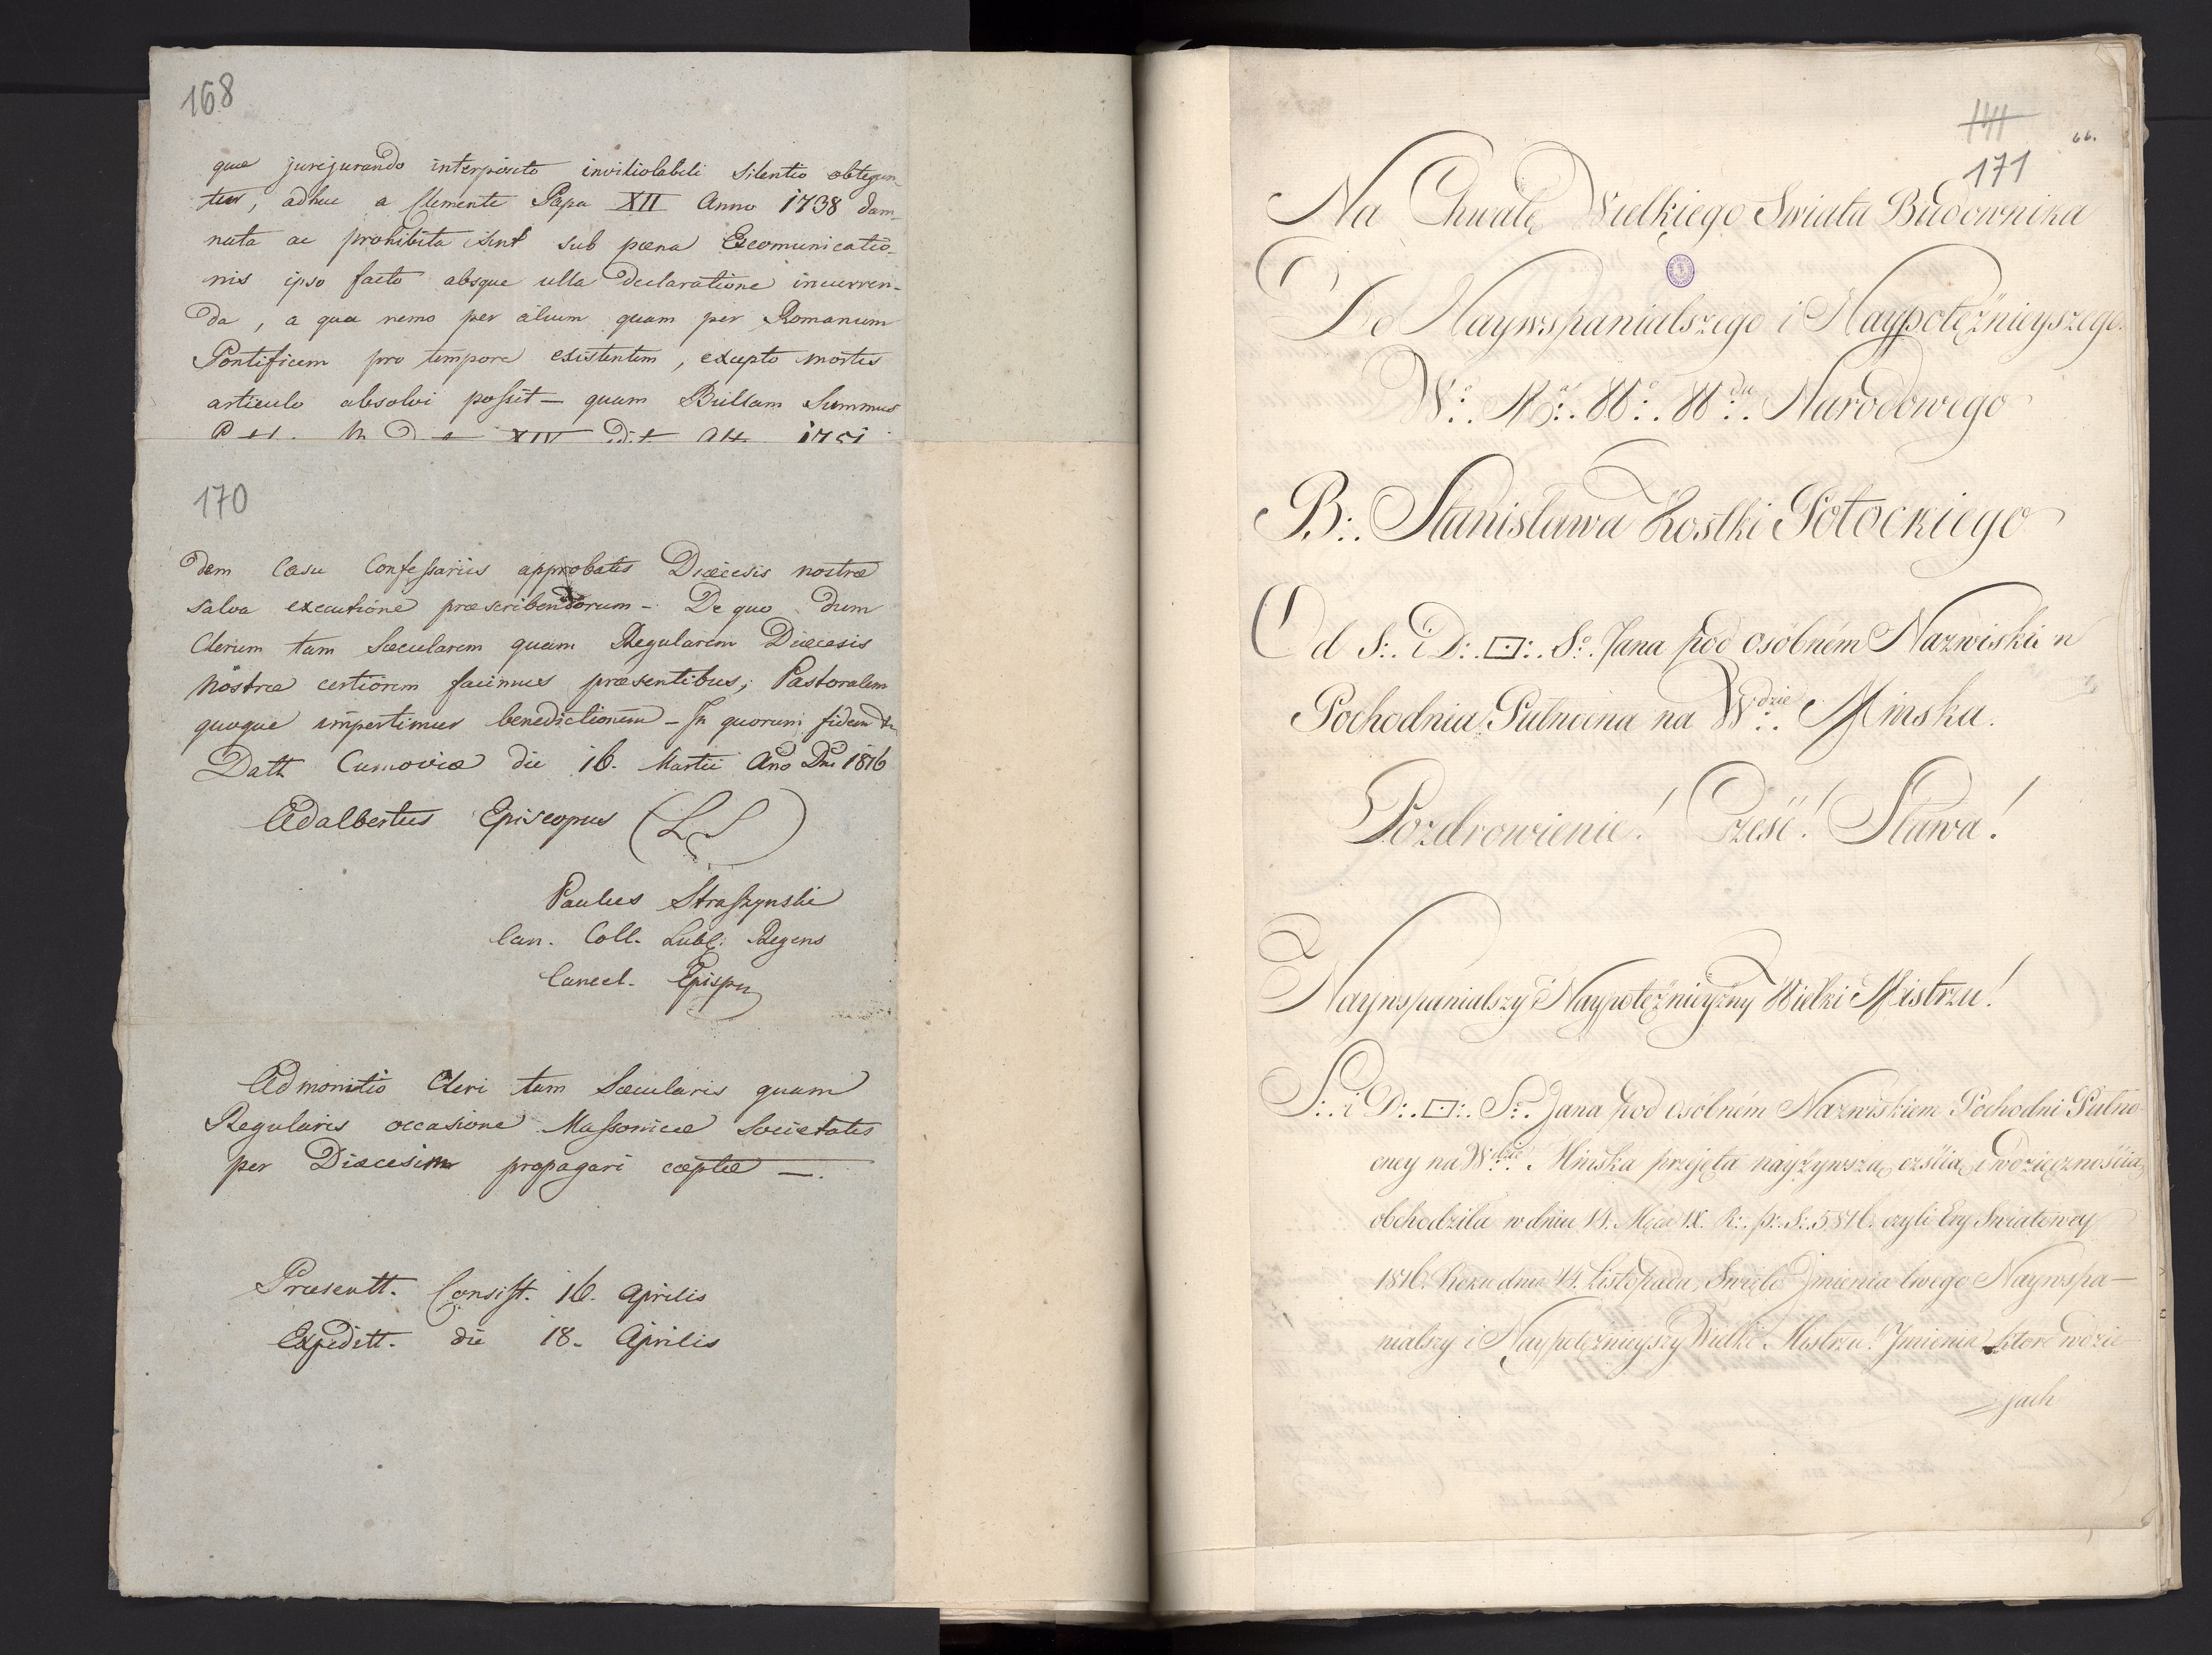 168
quæ jurejurando interposito inviolabili silentio obtegun-
tur, adhuc a Clemente Papa XII Anno 1738 dam-
nata ac prohibita sint sub pœna Excomunicatio-
nis ipso facto absque ulla declaratione incurren-
da, a qua nemo per alium quam per Romanum
Pontificem pro tempore existentem, excepto mortis
articulo absolvi possit – quam Bullam Summus
XIV 1751
170
dem Casu Confessarius approbatis Diœcesis nostræ
salva executione præscribendorum – De quo dum
Clerum tam Sæcularem quam Regularem Diœcesis
Nostræ certiorem facimus præsentibus, Pastoralem
quoque impertimur benedictionem – In quorum fidem
Datt Cumoviæ die 16. Martii Ano Dni 1816
Adalbertus Episcopus (LS)
Paulus Straszynski
Can. Coll. Lubl. Regens
Cancel. Eppis
Admonitio Cleri tam Sæcularis quam
Regularis occasione Massonicæ Societatis
per Diæcesim propagari cæptæ —.
Præsentt. Consist. 16. Aprilis
Expeditt. die 18. Aprilis
141
66.
171
Na Chwałę Wielkiego Swiata Budownika
Do Naywspanialszego i Naypotężnieyszego
W∴ M∴ W∴ W∴ Narodowego
B∴ Stanisława Kostki Potockiego
Od S∴ i D∴ ▭∴ So∴ Jana pod osóbném Nazwiskiem
Pochodnia Pułnocna na Wdzie∴ Minska.
Pozdrowienie! Cześć! Sława!
Naywspanialszy i Naypotężnieyszy Wielki Mistrzu!
S∴ i D∴ ▭∴ So∴ Jana pod osóbném Nazwiskiem Pochodni Pułno-
cney na Wdzie∴ Minska przejęta nayżywszą czścią i wdzięcznością
obchodziła w dniu 14. Mca IX. R∴ p∴ S∴ 5816. czyli Ery Swiatowey
1816. Roku dnia 14. Listopada, Swięto Jmienia twego Naywspa-
nialszy i Naypotężnieyszy Wielki Mistrzu! Jmienia które w dzie-
jach